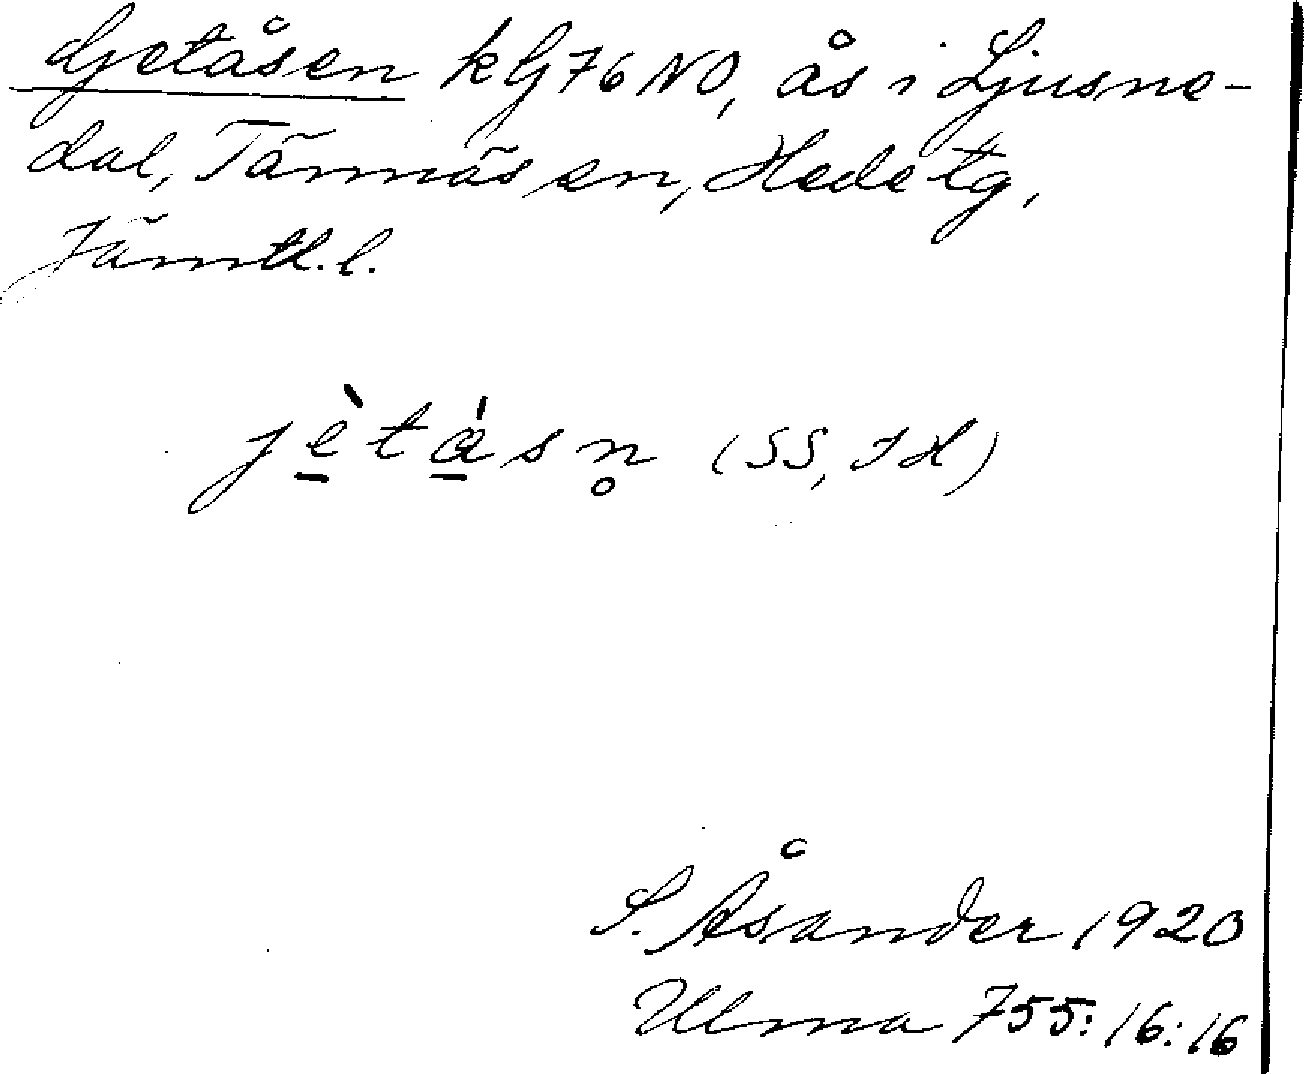 Gjetåsen kG76NO, ås i Ljusne-
dal, Tännäs sn, Hede tg,
Jämtl. l.
jè̱tá̱sn̥ (SS, JH)
S. Åsander 1920
Ulma 755:16:16